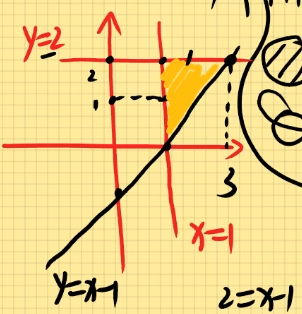 y=2
2
1
1
3
x=1
y=x-1
2=x-1